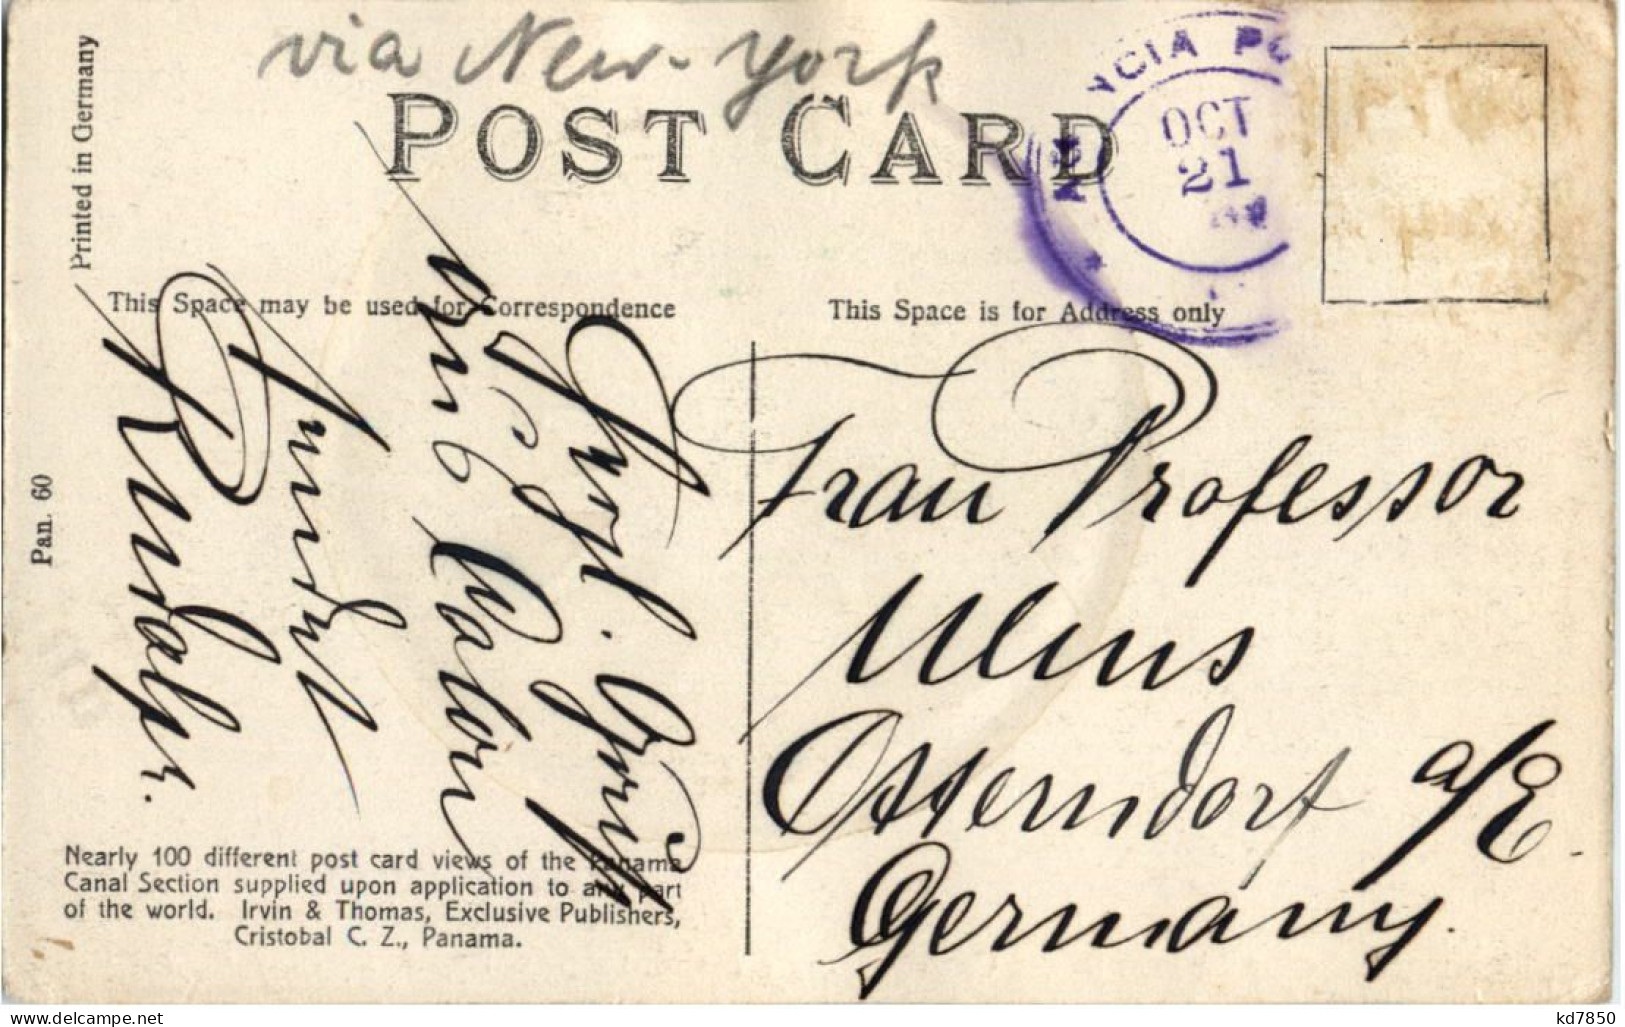 via New-York
POST CARD
NCIA PO
OCT
21
Printed in Germany
Pan. 60
This Space may be used for Correspondence
This Space is for Address only
aus Colon
Rudolph.
Frau Professor
Ulms
Osterndorf a/E.
Germany.
Nearly 100 different post card views of the Panama
Canal Section supplied upon application to any part
of the world. Irvin & Thomas, Exclusive Publishers,
Cristobal C. Z., Panama.
www.delcampe.net
kd7850